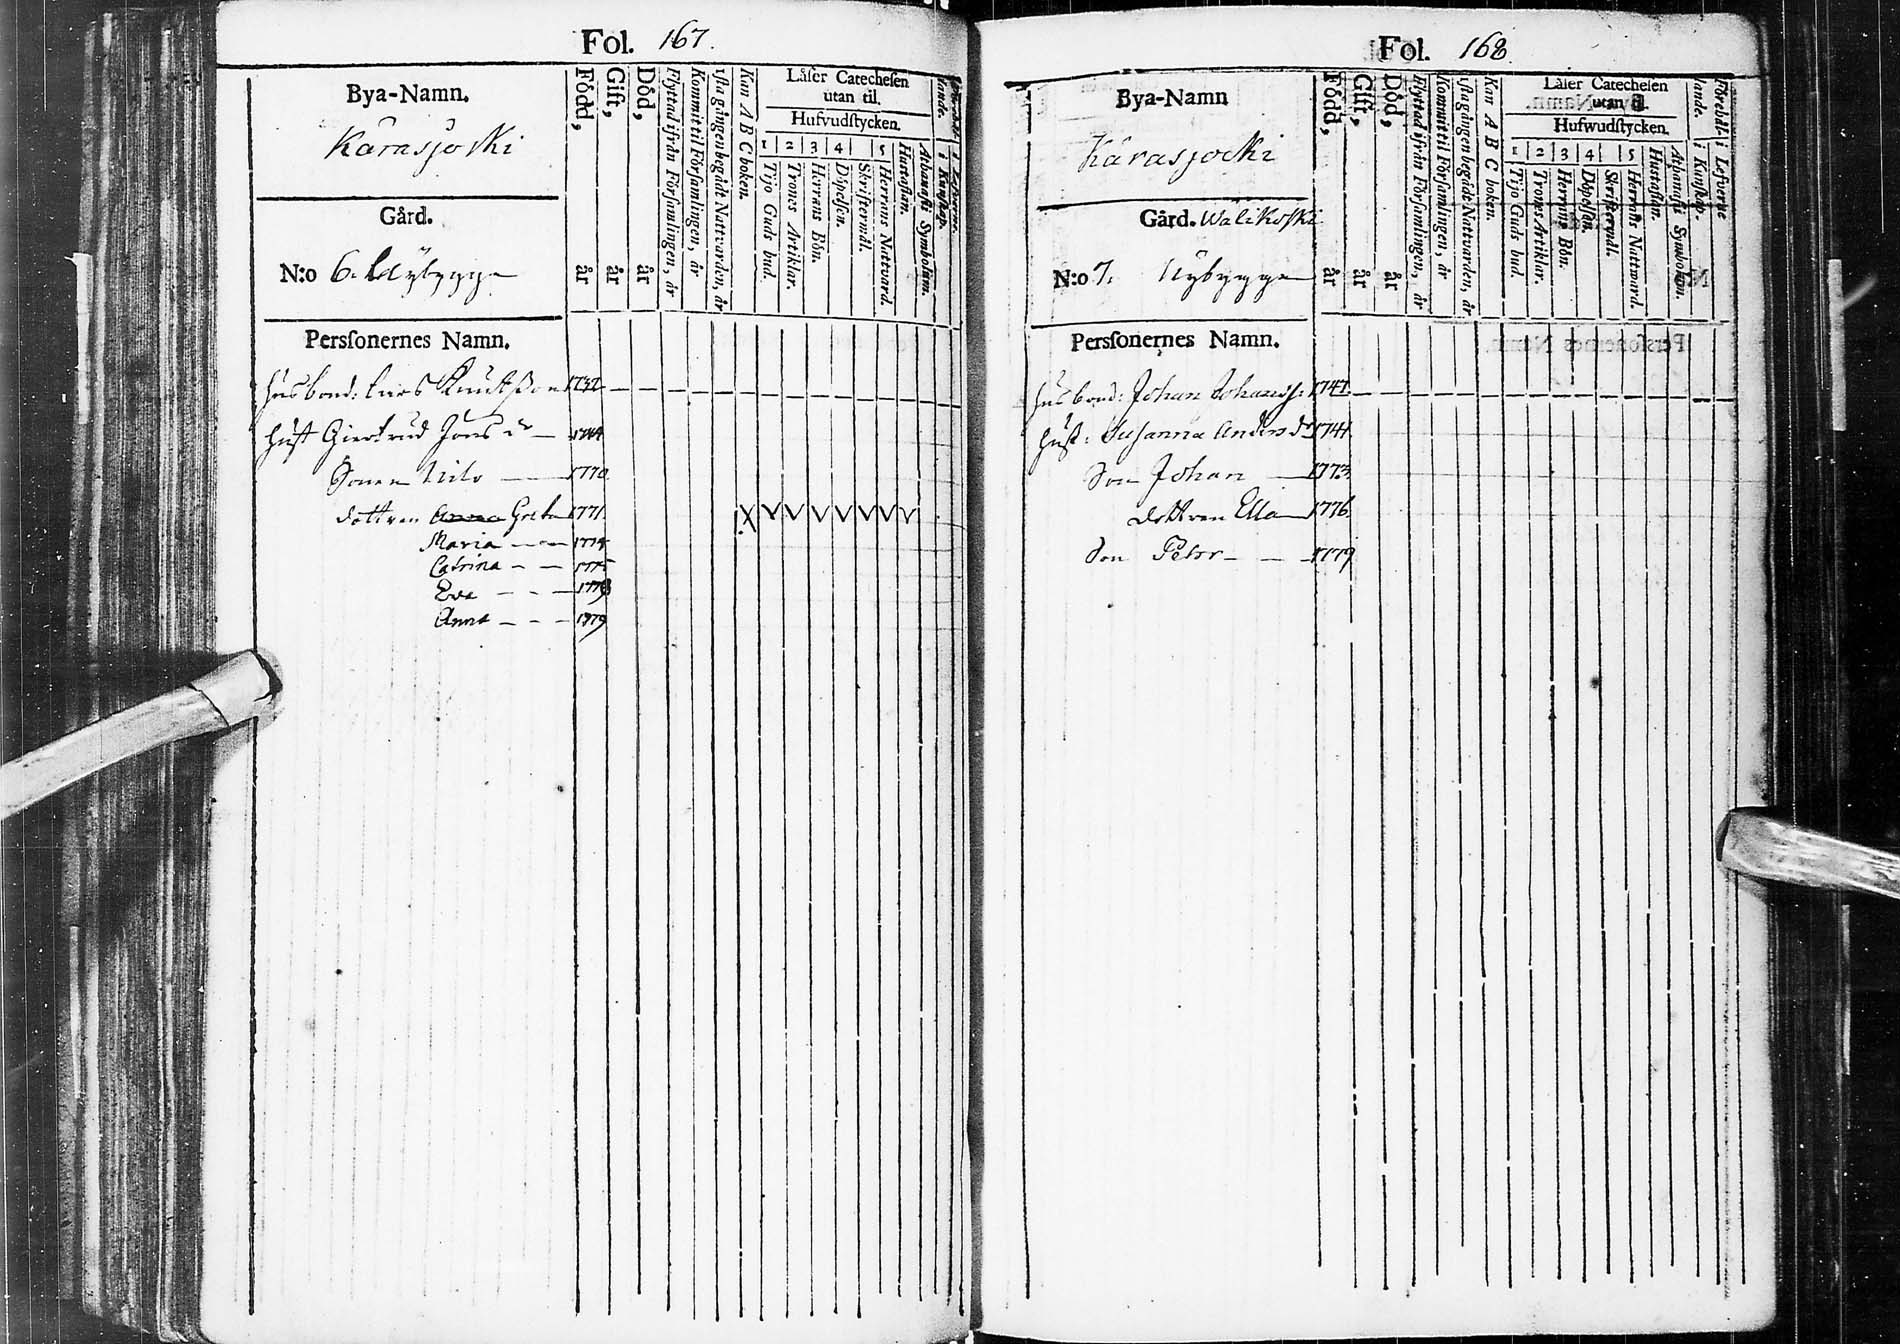 Fol. 167.
Bya-Namn.
Karasjoski
Gård.
N:o 6. Nÿbygge
Personernes Namn.
Född, år
Gift, år
Död, år
Flyttad ifrån Församlingen, år
Kommit til Församlingen, år
1sta gången begådt Nattvarden, år
Kan A B C boken.
Låser Catechesen
utan til.
Hufvudstycken.
1 2 3 4 5
Tijo Guds bud.
Trones Artiklar.
Herrans Bön.
Döpelsen.
Skriftermål.
Herrans Nattvard.
Hustaflan.
Athanasii Symbolum.
i Kunskap.
i Lefverne.
Husbond: Lars Knutsson 1737
Hust Giertrud Jons dr — 1744
Sonen Nils — 1770.
dottren Anna Greta 1771
Maria — 1774
Catrina — — 1775
Eva — — 1778
Anna — — — 1779
Fol. 168
Bya-Namn
Karasjocki
Gård. Walikoski
N:o 7. Nÿbygge
Personernes Namn.
Född, år
Gift, år
Död, år
Flyttad ifrån Församlingen, år
Kommit til Församlingen, år
1sta gången begådt Nattvarden, år
Kan A B C boken.
Låser Catechesen
utan til.
Hufwudstycken.
1 2 3 4 5
Tijo Guds bud.
Trones Artiklar.
Herrans Bön.
Döpelsen.
Skriftermål.
Herrans Nattward.
Hustaflan.
Athanasii Symbolum.
i Kunskap.
i Lefverne
Husbond: Johan Johanss: 1741.
Hust: Susanna Anders dr 1741.
Son Johan — 1773.
dottren Ella — 1776.
Son Peter — — 1779